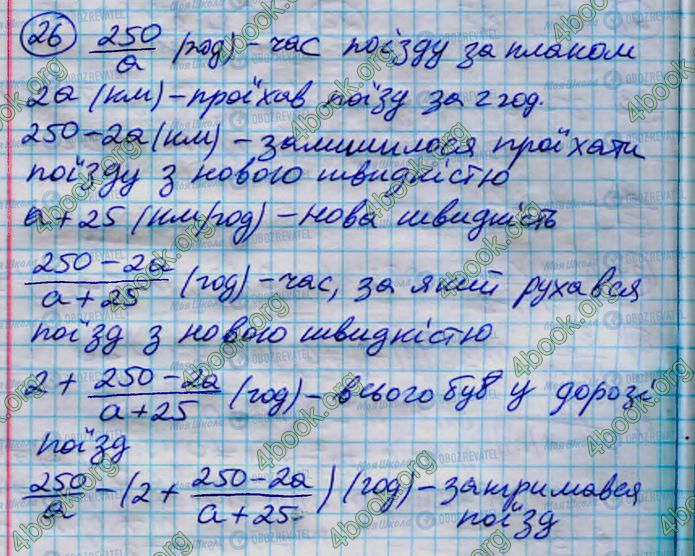 26 250/a (год) – час поїзду за планом
2a (км) – проїхав поїзд за 2 год.
250 – 2a (км) – залишилося проїхати
поїзду з новою швидкістю
a + 25 (км/год) – нова швидкість
(250 – 2a)/(a + 25) (год) – час, за який рухався
поїзд з новою швидкістю
2 + (250 – 2a)/(a + 25) (год) – всього був у дорозі
поїзд
250/a – (2 + (250 – 2a)/(a + 25)) (год) – затримався
поїзд